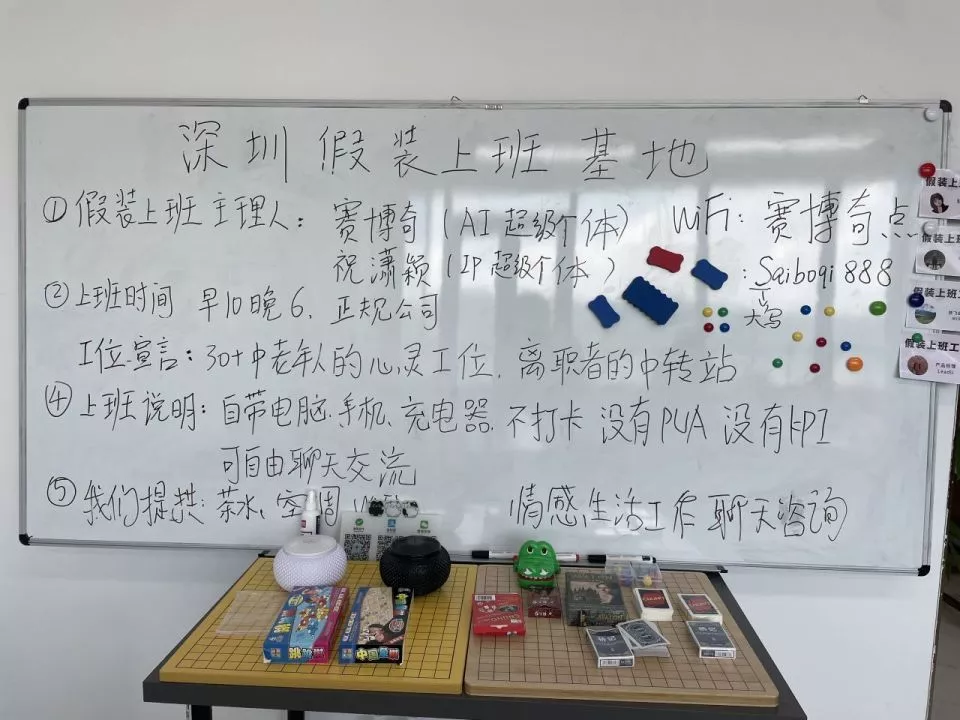 深圳假装上班基地
①假装上班主理人：赛博奇（AI超级个体）
祝潇颖（IP超级个体）
WiFi：赛博奇点
：Saiboqi888
大写
②上班时间 早10晚6，正规公司
工位宣言：30+中老年人的心灵工位，离职者的中转站
④上班说明：自带电脑、手机、充电器，不打卡 没有PUA 没有KPI
可自由聊天交流
⑤我们提供：茶水、空调、
情感生活工作聊天咨询
假装上
假装上班
假装上班工
跳跳棋
中国象棋